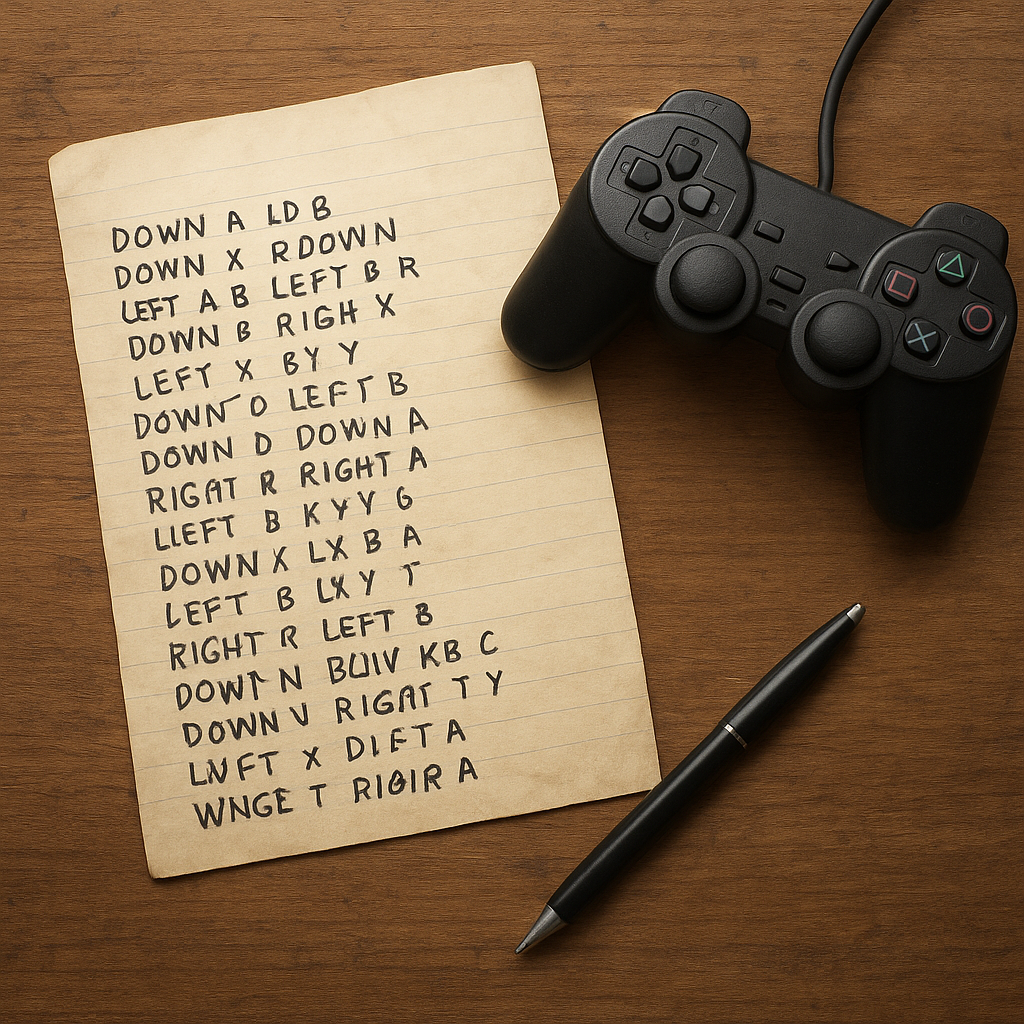 DOWN A LD B
DOWN X RDOWN
LEFT A B LEFT B R
DOWN B RIGH X
LEFT X BY Y
DOWN O LEFT B
DOWN D DOWN A
RIGAT R RIGHT A
LLEFT B K Y Y G
DOWN X LX B A
LEFT B LXY T
RIGHT R LEFT B
DOWT N BUIV KB C
DOWN V RIGAT T Y
LNFT X DIFT A
WNGE T RIGIR A